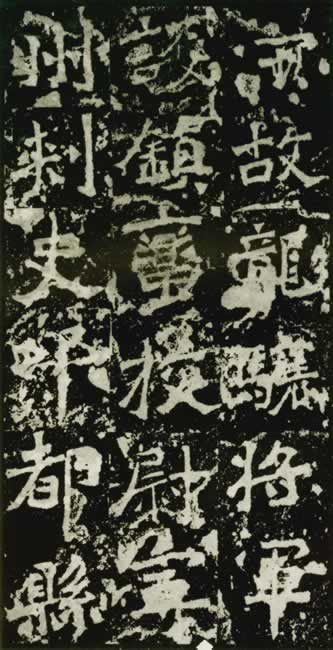 宋故龍驤將軍
護鎮蠻校尉寧
州刺史邛都縣